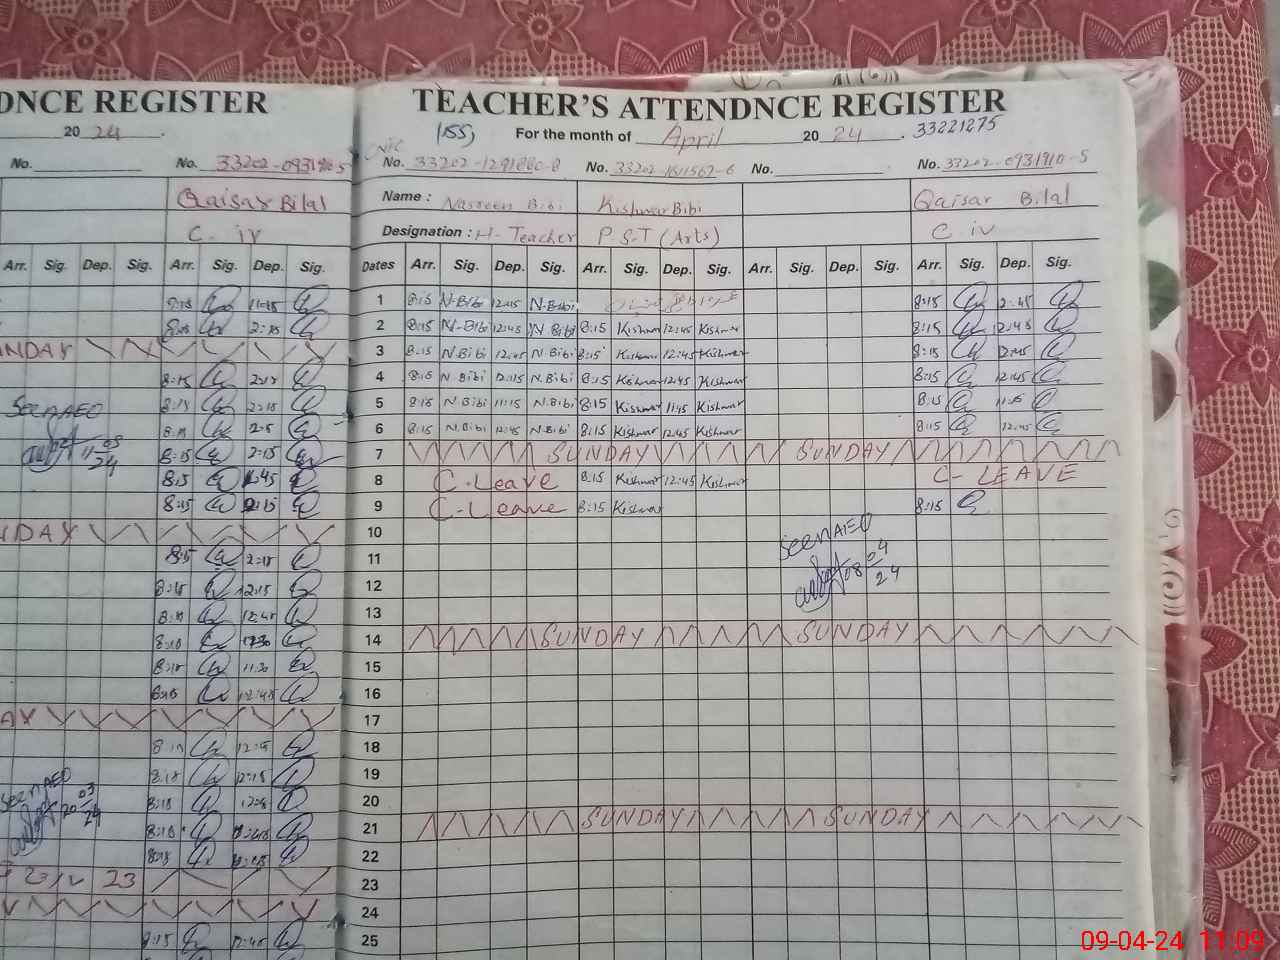 DNCE REGISTER
20 24
No. No. 33202-0931910-5
Qaisar Bilal
C. iv
Arr. Sig. Dep. Sig. Arr. Sig. Dep. Sig.
8:15 11:45
8:15 2:15
NDAY
8:15 2:15
Seen AEO 8:15 2:15
11 03 24
8:15 2:15
8:15
8:15
NDAY
8:15 2:15
8:15 2:15
12:45
8:15
8:15 11:30
12:45
AY
8:15
8:15 12:15
Seen AEO
20 03 24
8:15
23 23
8:15 12:45
TEACHER'S ATTENDNCE REGISTER
(155) For the month of April 20 24 . 33221275
No. No. No. No. 33202-0931910-5
Name : Nasreen Bibi Kishwar Bibi Qaisar Bilal
Designation : H-Teacher P.S.T (Arts) C. iv
Dates Arr. Sig. Dep. Sig. Arr. Sig. Dep. Sig. Arr. Sig. Dep. Sig. Arr. Sig. Dep. Sig.
1 8:15 N-Bibi 12:15 N-Bibi 8:15 12:45
2 8:15 N-Bibi 12:45 N Bibi 8:15 Kishwar 12:45 Kishwar 8:15 12:45
3 8:15 N.Bibi 12:45 N.Bibi 8:15 Kishwar 12:45 Kishwar 8:15 12:45
4 8:15 N.Bibi 12:15 N.Bibi 8:15 Kishwar 12:45 Kishwar 8:15 12:45
5 8:15 N.Bibi 11:15 N.Bibi 8:15 Kishwar 11:45 Kishwar 8:15
6 8:15 N.Bibi 12:45 N.Bibi 8:15 Kishwar 12:45 Kishwar 8:15 12:45
7 SUNDAY SUNDAY
8 C-Leave 8:15 Kishwar 12:45 Kishwar C-LEAVE
9 C-Leave 8:15 Kishwar 8:15
10
Seen AEO
11
08 04 24
12
13
14 SUNDAY SUNDAY
15
16
17
18
19
20
21 SUNDAY SUNDAY
22
23
24
25
09-04-24 11:09